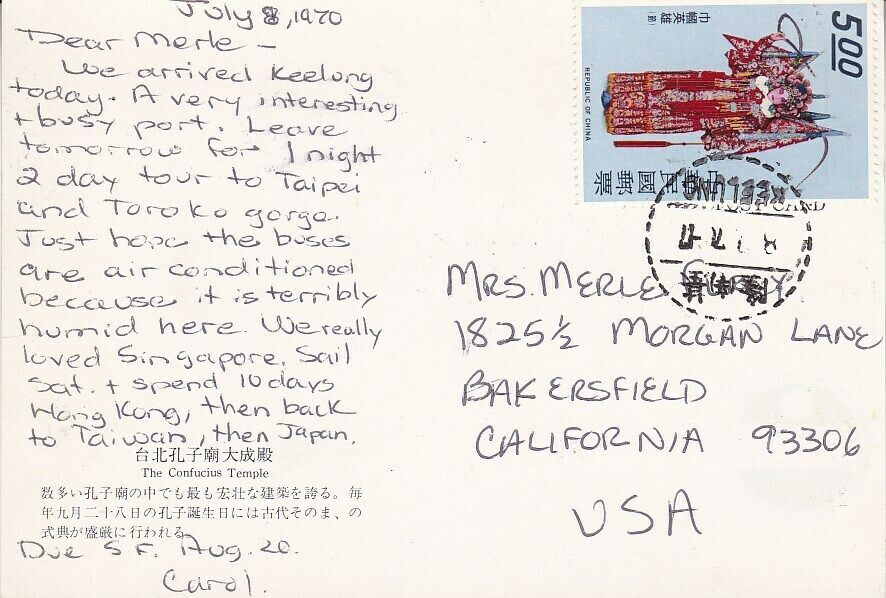 July 8, 1970
Dear Merle –
We arrived Keelung
today. A very interesting
+ busy port. Leave
tomorrow for 1 night
2 day tour to Taipei
and Toroko gorge.
Just hope the buses
are air conditioned
because it is terribly
humid here. We really
loved Singapore. Sail
Sat. + spend 10 days
Hong Kong, then back
to Taiwan, then Japan.
台北孔子廟大成殿
The Confucius Temple
数多い孔子廟の中でも最も宏壮な建築を誇る。毎
年九月二十八日の孔子誕生日には古代そのま、の
式典が盛厳に行われる。
Due S F. Aug. 20.
Carol.
5.00
巾幗英雄
(劇)
REPUBLIC OF CHINA
中華民國郵票
KEELUNG
POST CARD
MRS. MERLE
1825½ MORGAN LANE
BAKERSFIELD
CALIFORNIA 93306
USA